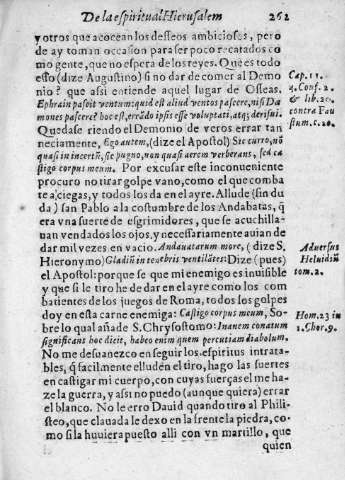 De la espiritual Hierusalem 262
y otros que acocean los desseos ambiciosos, pero
de ay toman occasion para ser poco recatados co
mo gente, que no espera de los reyes. Que es todo
esso (dize Augustino) si no dar de comer al Demo
nio? que assi entiende aquel lugar de Osseas.
Ephrain pascit ventum: quid est aliud ventos pascere, nisi Dæ
mones pascere? hoc est, errãdo ipsis esse voluptati, atq; derisui.
Quedase riendo el Demonio de veros errar tan
neciamente, Ego autem, (dize el Apostol) Sic curro, nõ
quasi in incertũ, sic pugno, non quasi aerem verberans, sed ca
stigo corpus meum. Por excusar este inconueniente
procuro no tirar golpe vano, como el que comba
te a ciegas, y todos los da en el ayre. Allude (sin du
da) san Pablo a la costumbre de los Andabatas, q̃
era vna suerte de esgrimidores, que se acuchilla-
uan vendados los ojos, y necessariamente auian de
dar mil vezes en vacio. Andauatarum more, (dize S.
Hieronymo) Gladiũ in tenebris ventilãtes: Dize (pues)
el Apostol: porque se que mi enemigo es inuisible
y que si le tiro he de dar en el ayre como los com
batientes de los juegos de Roma, todos los golpes
doy en esta carne enemiga: Castigo corpus meum, So-
bre lo qual añade S. Chrysostomo: Inanem conatum
significans hoc dicit, habeo enim quem percutiam diabolum.
No me desuanezco en seguir los espiritus intrata-
bles, q̃ facilmente elluden el tiro, hago las suertes
en castigar mi cuerpo, con cuyas fuerças el me ha-
ze la guerra, y assi no puedo (aunque quiera) errar
el blanco. No le erro Dauid quando tiro al Phili-
steo, que clauada le dexo en la frente la piedra, co-
mo si la huuiera puesto alli con vn martillo, que
quien
Cap. 11.
4. Conf. 2.
& lib. 20.
contra Fau
stum. c. 20.
Aduersus
Heluidiũ
tom. 2.
Hom. 23 in
1. Chor. 9.